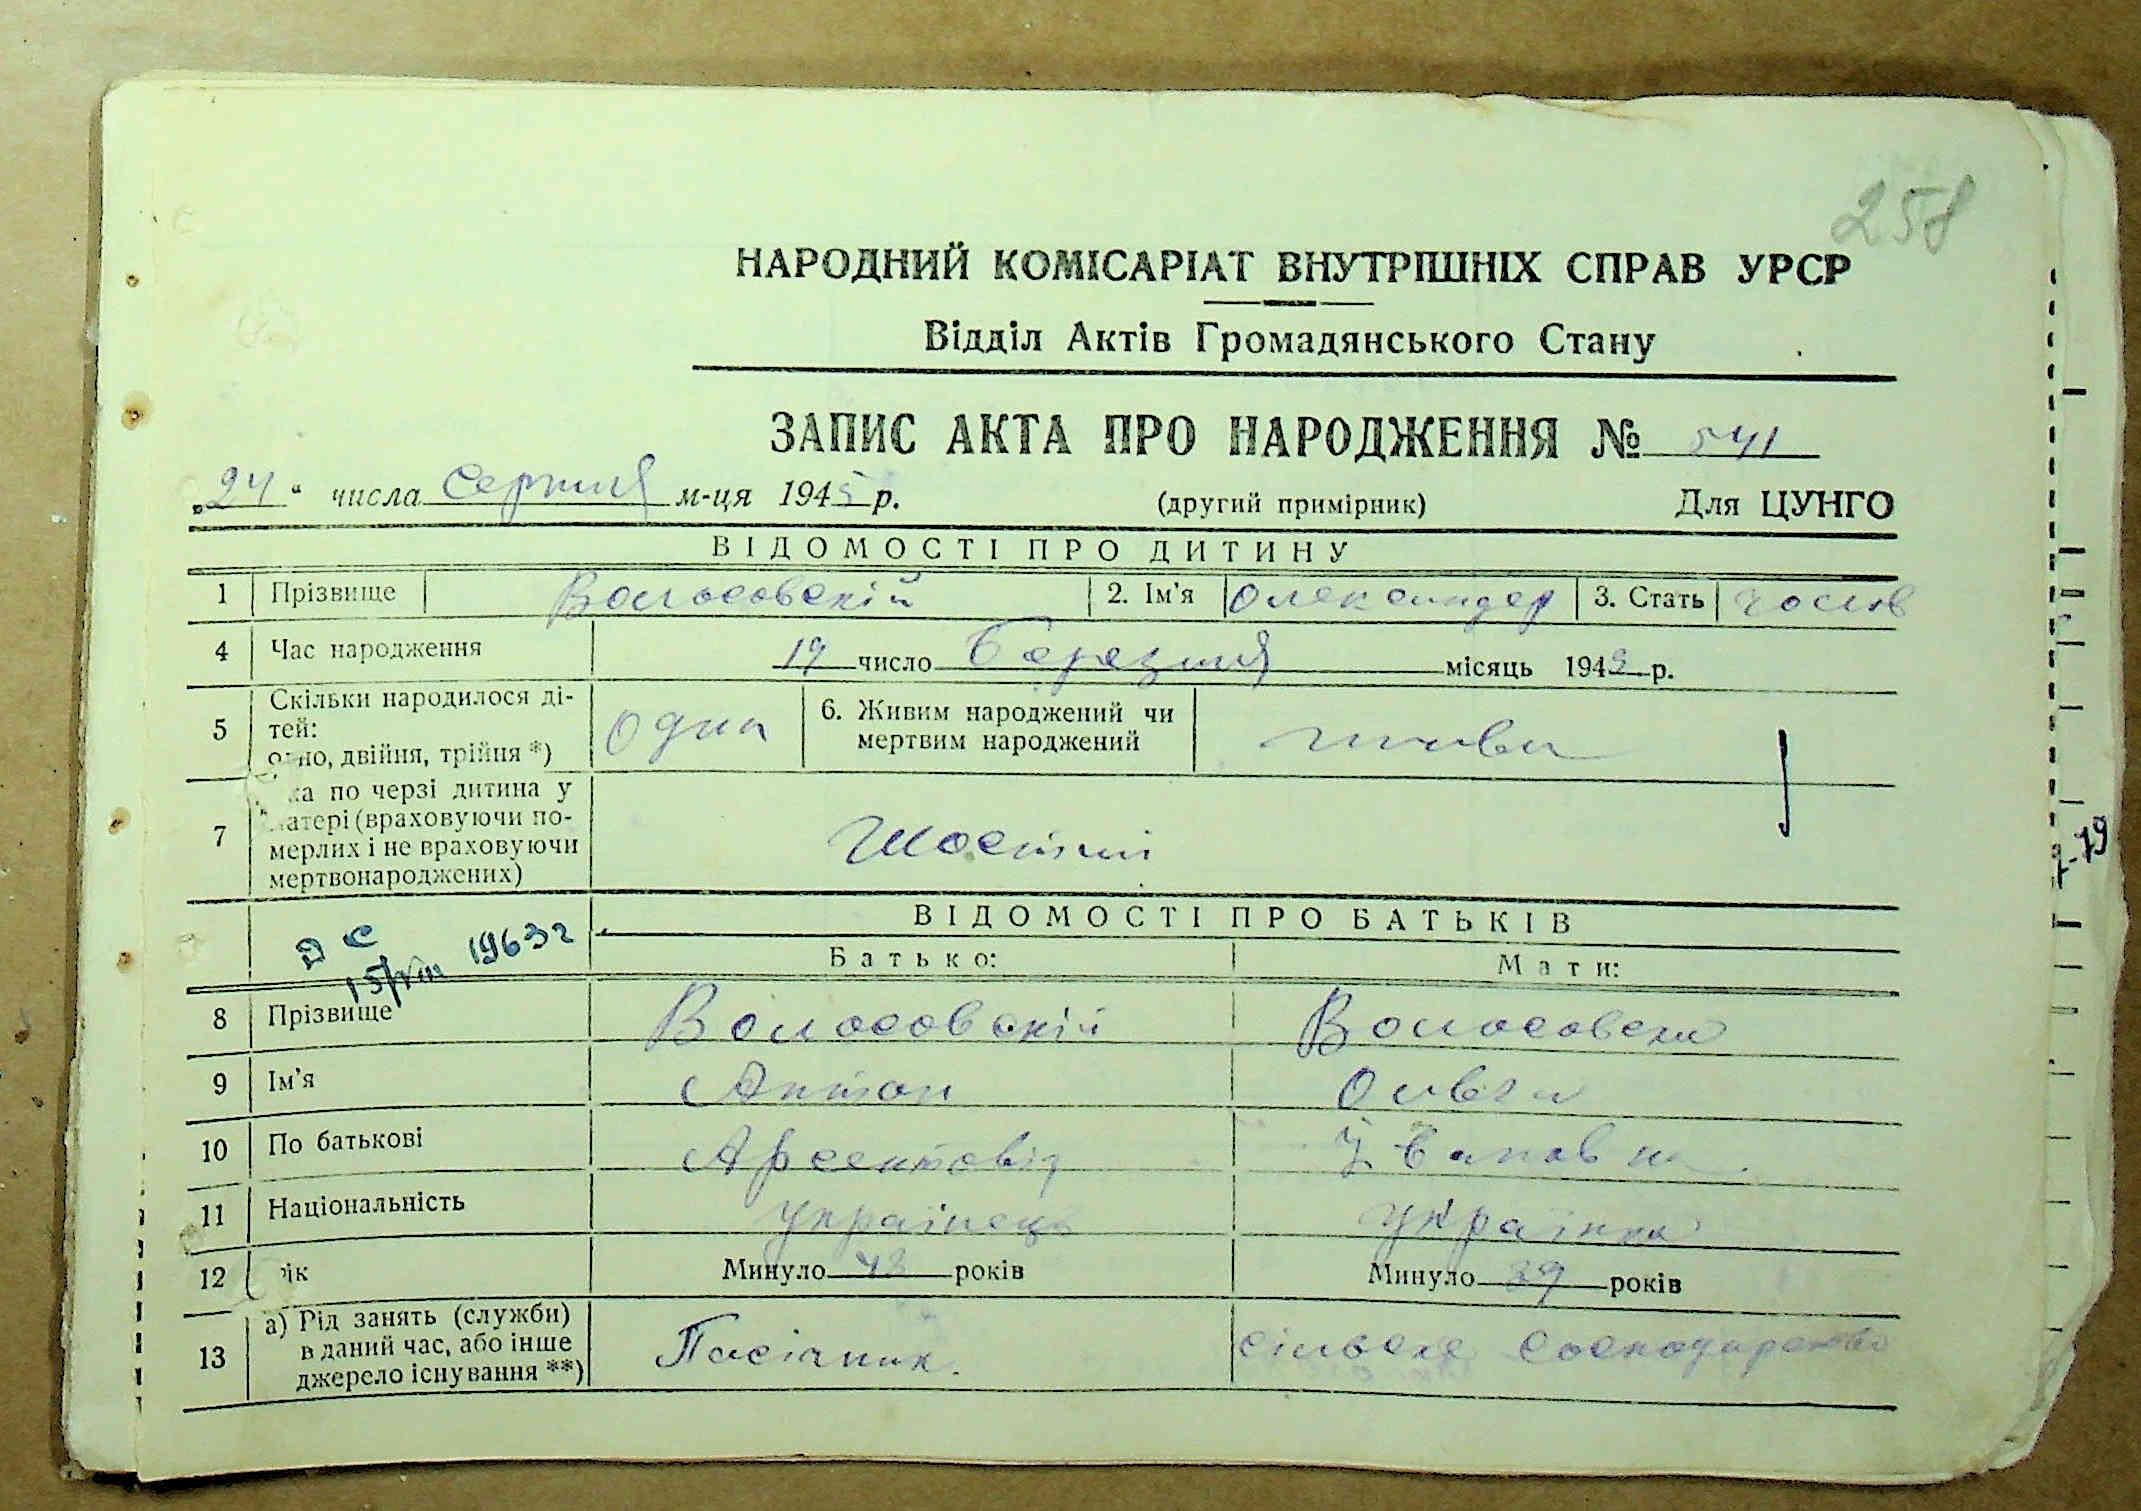 258
НАРОДНИЙ КОМІСАРІАТ ВНУТРІШНІХ СПРАВ УРСР
Відділ Актів Громадянського Стану
ЗАПИС АКТА ПРО НАРОДЖЕННЯ № 541
„24“ числа серпня м-ця 1945 р. (другий примірник) Для ЦУНГО
ВІДОМОСТІ ПРО ДИТИНУ
1 Прізвище Волосовскій 2. Ім'я Олександер 3. Стать
4 Час народження 19 число Березня місяць 194 р.
5 Скільки народилося ді-
тей:
одно, двійня, трійня *) одна 6. Живим народжений чи
мертвим народжений живи
7 ка по черзі дитина у
матері (враховуючи по-
мерлих і не враховуючи
мертвонароджених) Шостий
ВІДОМОСТІ ПРО БАТЬКІВ
Д С 15/VIII 1963г
Батько: Мати:
8 Прізвище Волосовскій Волосовска
9 Ім'я Антон Ольга
10 По батькові Арсентовіч Івановна
11 Національність українець українка
12 ік Минуло 43 років Минуло 39 років
13 а) Рід занять (служби)
в даний час, або інше
джерело існування **) Пасічник. сільске господарство
-79